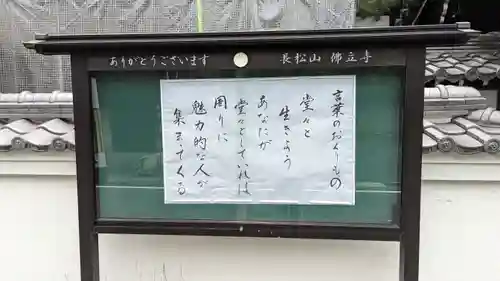 ありがとうございます
長松山 佛立寺
言葉のおくりもの
堂々と
生きよう
あなたが
堂々としていれば
周りに
魅力的な人が
集まってくる